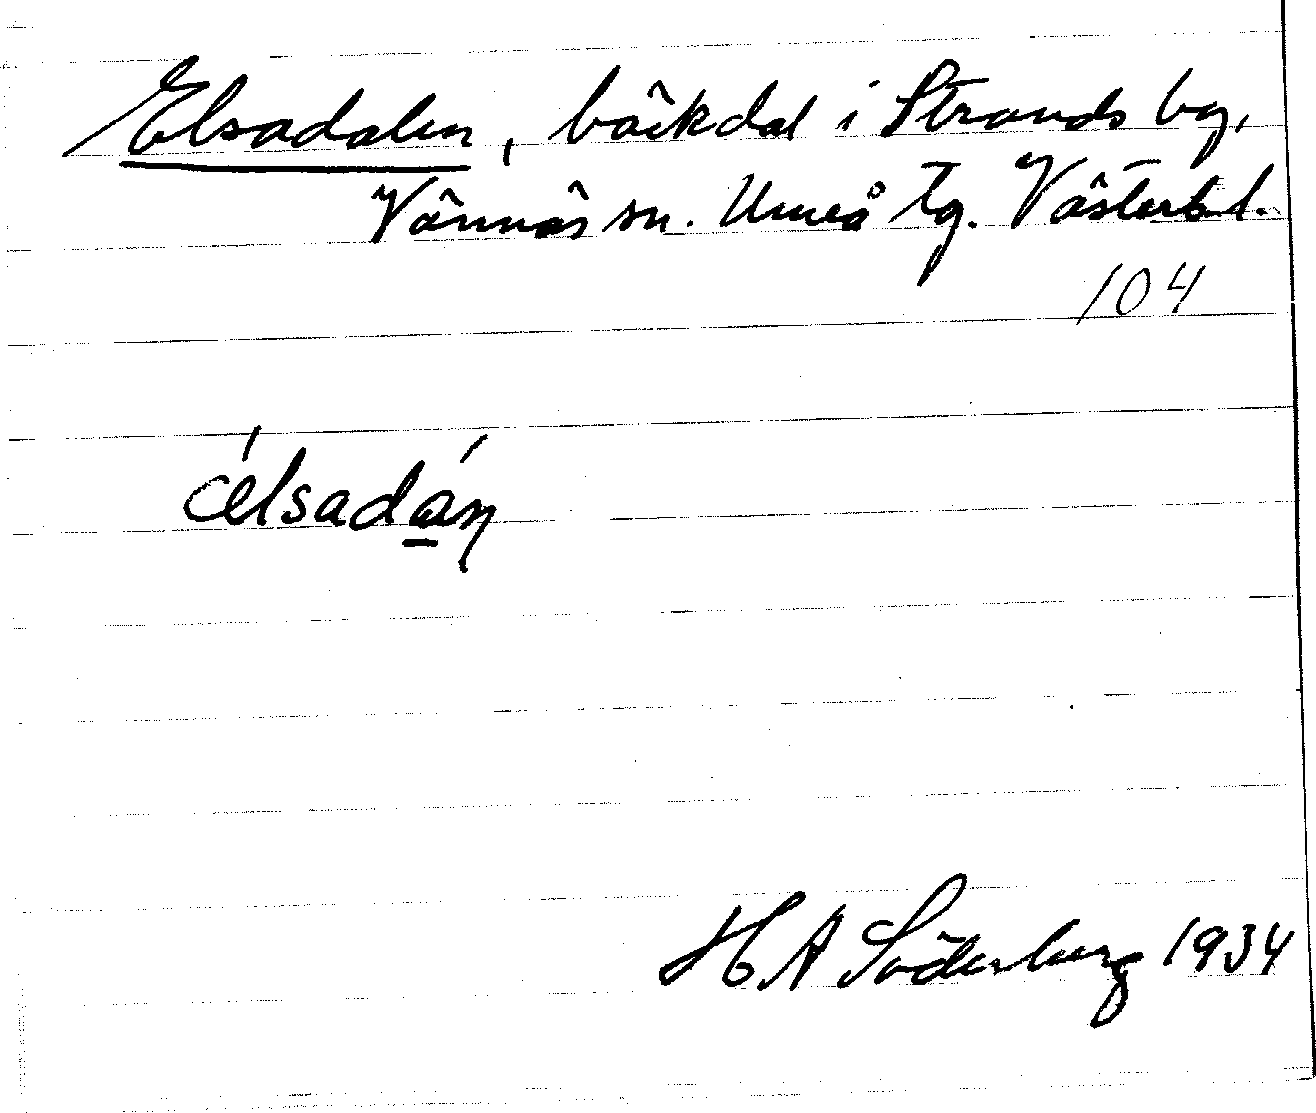 Elsadalen, bäckdal i Strands by,
Vännäs sn. Umeå tg. Västerb. l.
104
élsadán
H A Söderberg 1934